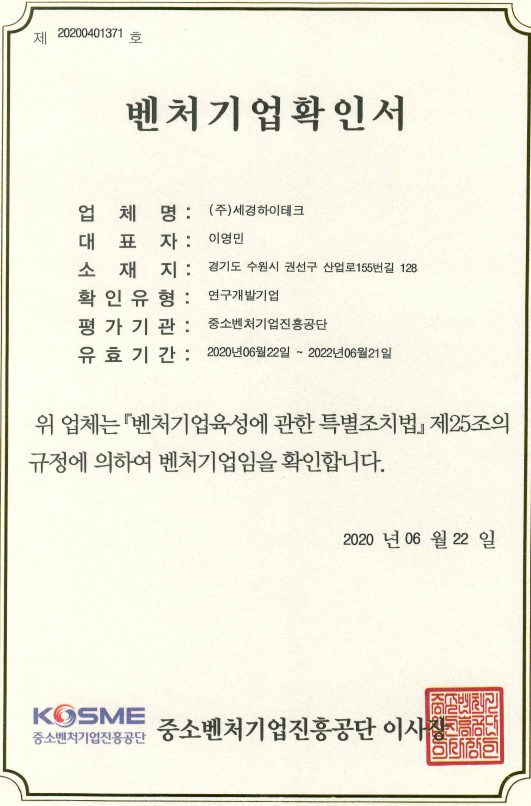 제 20200401371 호
벤처기업확인서
업 체 명 : (주)세경하이테크
대 표 자 : 이영민
소 재 지 : 경기도 수원시 권선구 산업로155번길 128
확 인 유 형 : 연구개발기업
평 가 기 관 : 중소벤처기업진흥공단
유 효 기 간 : 2020년06월22일 ~ 2022년06월21일
위 업체는 『벤처기업육성에 관한 특별조치법』 제25조의
규정에 의하여 벤처기업임을 확인합니다.
2020 년 06 월 22 일
KOSME
중소벤처기업진흥공단
중소벤처기업진흥공단 이사장